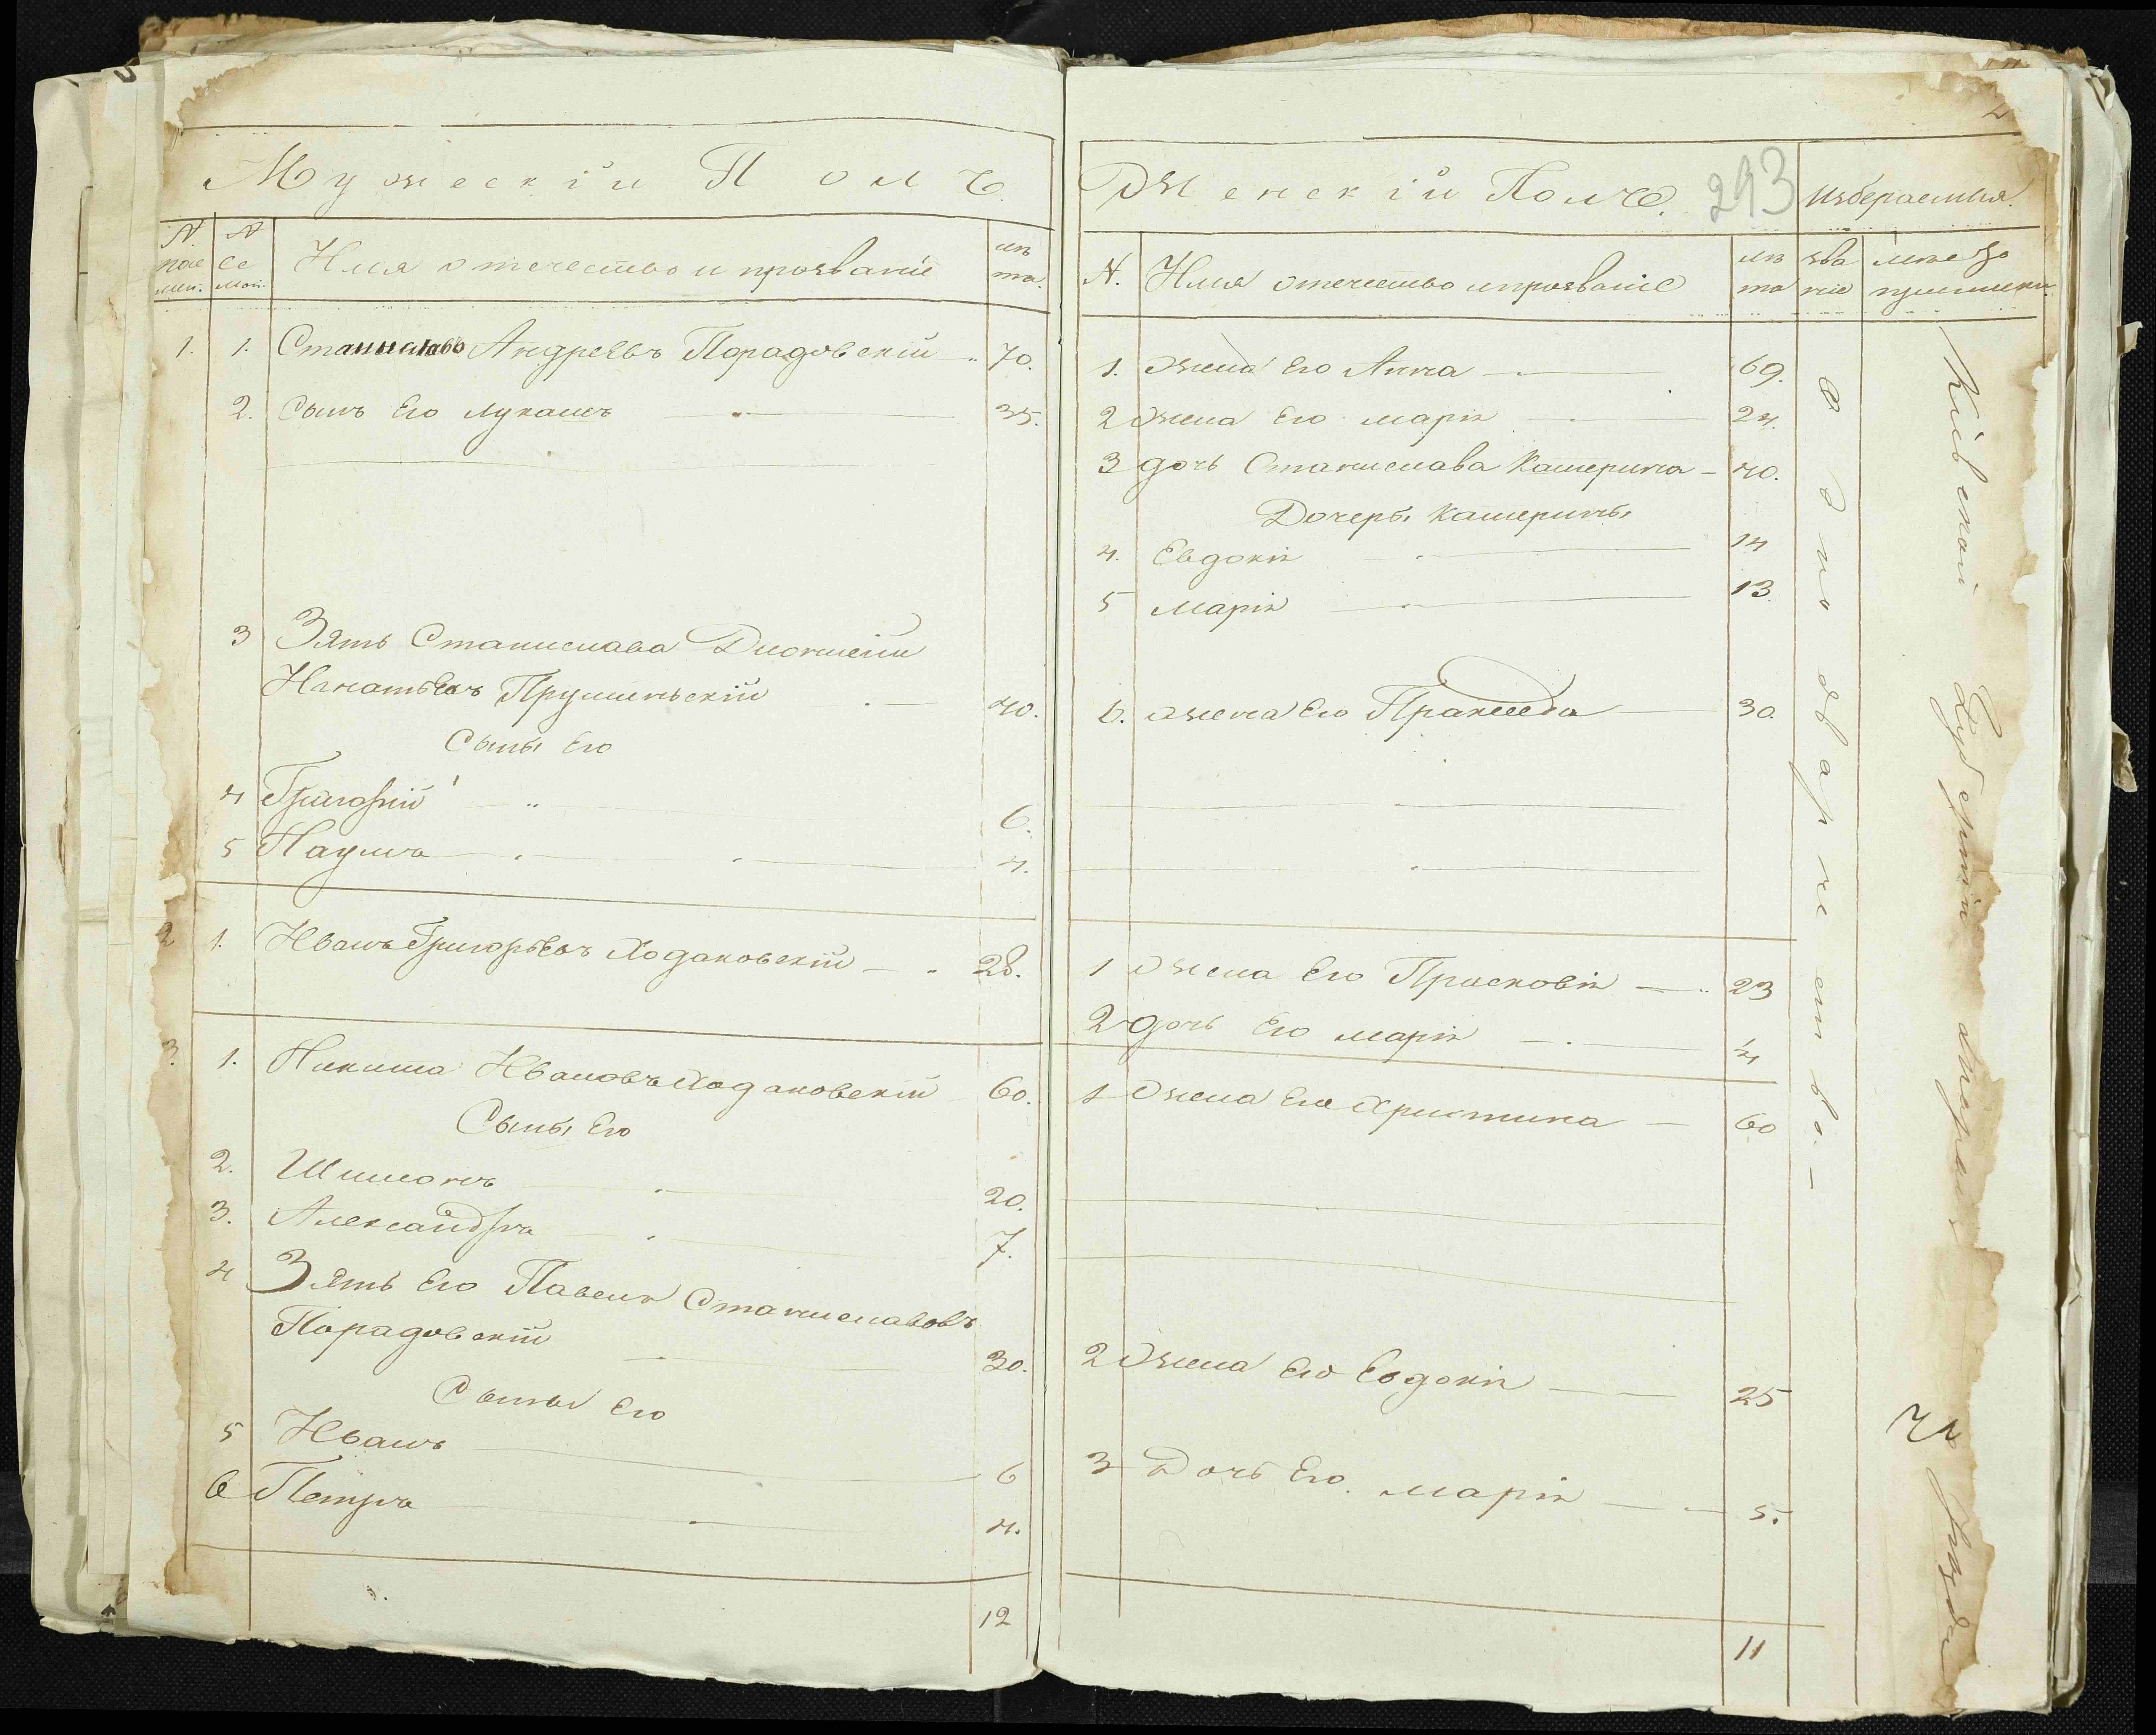 Мужескій Полъ.
N. N
се
мей.
Имя отечество и прозваніе
лѣ
та.
1. 1. Станиславъ Андреевъ Порадовскій 70.
2. Сынъ Его Лукашъ 35.
3 Зять Станислава Діонисій
Игнатьевъ Прушинскій 40.
Сыны Его
4 Григорій 6.
5 Наумъ 4.
2 1. Иванъ Григорьевъ Ходаковскій 28.
3. 1. Никита Ивановъ Ходаковскій 60.
Сыны Его
2. Шимонъ 20.
3. Александръ 7.
4 Зять Его Павелъ Станиславовъ
Порадовскій 30.
Сыны Его
5 Иванъ 6
6 Петръ 4.
12
Женскій Полъ.
293
N. Имя отечество и прозваніе
лѣ
та
зва
ніе
1. Жена Его Анна 69.
2 Жена Его Марія 24.
3 дочь Станислава Катерина 40.
Дочеры Катерины
4. Евдокія 14
5 Марія 13.
6. жена Его Пракседа 30.
1 Жена Его Прасковія 23
2 дочь Его Марія
1 Жена Его Христина 60
2 Жена Его Евдокія 25
3 Дочь Его Марія 5.
11
Кіевской Губерніи